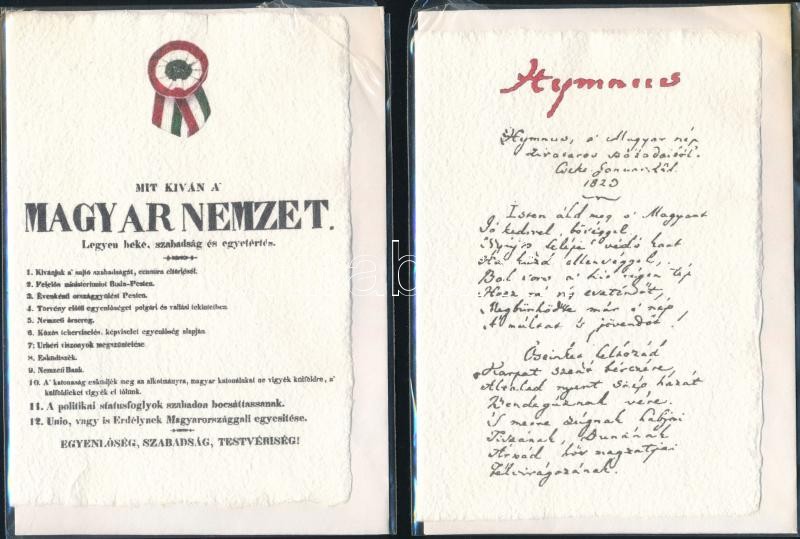 MIT KIVÁN A'
MAGYAR NEMZET.
Legyen béke, szabadság és egyetértés.
1. Kivánjuk a' sajtó szabadságát, censura eltörlését.
2. Felelős ministeriumot Buda-Pesten.
3. Évenkinti országgyülést Pesten.
4. Törvény előtti egyenlőséget polgári és vallási tekintetben.
5. Nemzeti őrsereg.
6. Közös teherviselés.
7. Urbéri viszonyok megszüntetése.
8. Esküdtszék.
9. Nemzeti Bank.
10. A' katonaság esküdjék meg az alkotmányra, magyar katonáinkat ne vigyék külföldre, a'
külföldieket vigyék el tőlünk.
11. A politikai statusfoglyok szabadon bocsáttassanak.
12. Unio, vagy is Erdélynek Magyarországgali egyesitése.
EGYENLŐSÉG, SZABADSÁG, TESTVÉRISÉG!
Hymnus
Hymnus, a' Magyar nép
zivataros századaiból.
Cseke Januar
1823
Isten áld meg a' Magyart
Jó kedvvel, bőséggel
Nyujts feléje védő kart
Ha küzd ellenséggel,
Bal sors a' kit régen tép
Hozz rá víg esztendőt,
Megbünhödte már e' nép
A' múltat 's jövendőt!
Őseinket felhozád
Kárpát szent bérczére
Általad nyert szép hazát
Bendegúznak vére.
'S merre zúgnak habjai
Tiszának Dunának
Árpád hős magzatjai
Felvirágozának.